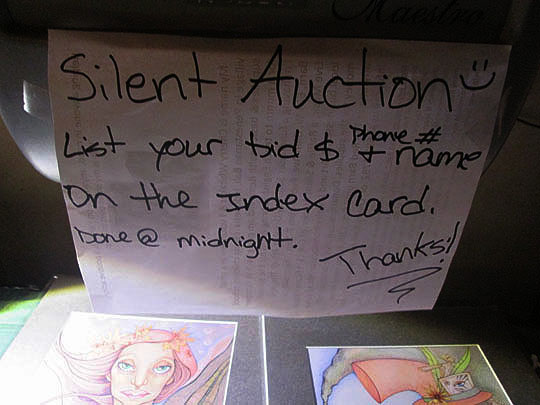 Maestro
Silent Auction
List your bid $ Phone # + name
On the Index Card.
Done @ midnight.
Thanks!